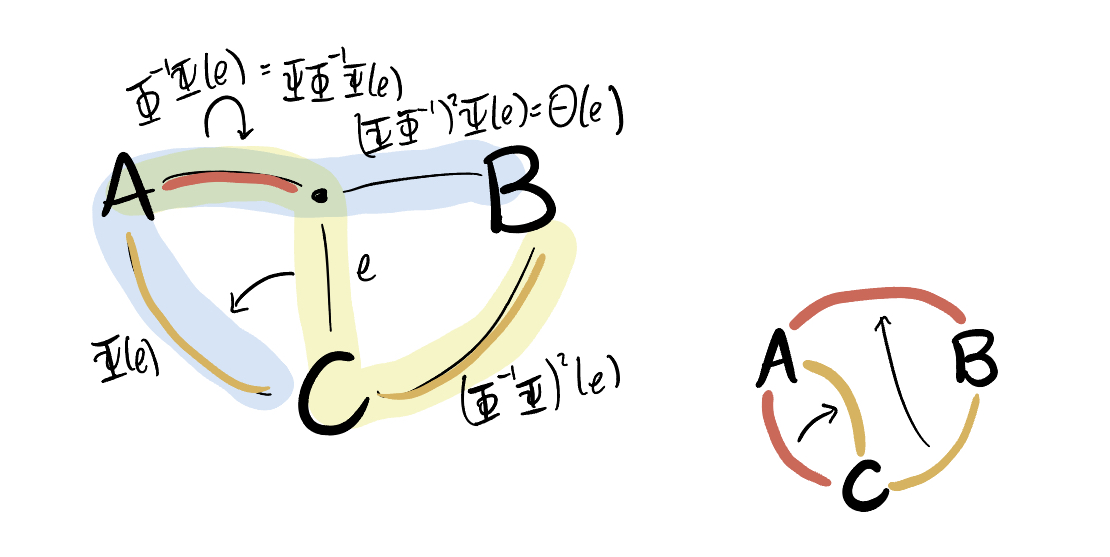 Φ⁻¹Ψ(e) = ΨΦ⁻¹Ψ(e)
(ΨΦ⁻¹)²Ψ(e)=Θ(e)
A
B
e
Ψ(e)
C
(Φ⁻¹Ψ)²(e)
A
B
C